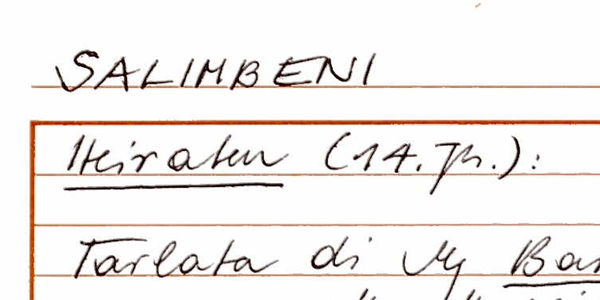 SALIMBENI
Heiraten (14. Jh.):
Tarlata di